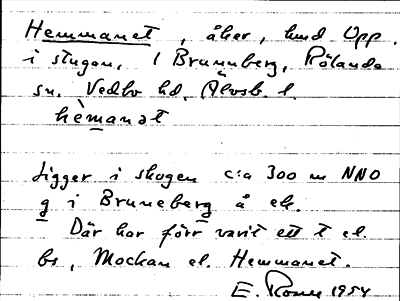 Hemmanet, åker, hmd Upp.
i stugan, 1 Brunnberg, Rölanda
sn, Vedbo hd, Älvsb. l.
hèmanət
Ligger i skogen c:a 300 m NNO
g i Bruneberg å ek.
Där har förr varit ett t el.
bs, Mockan el. Hemmanet.
E. 1954